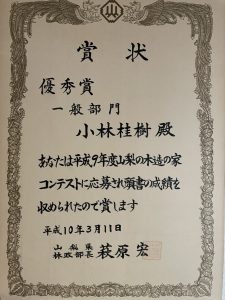 賞状
優秀賞
一般部門
小林桂樹殿
あなたは平成9年度山梨の木造の家
コンテストに応募され頭書の成績を
収められたので賞します
平成10年3月11日
山梨県
林政部長 萩原宏